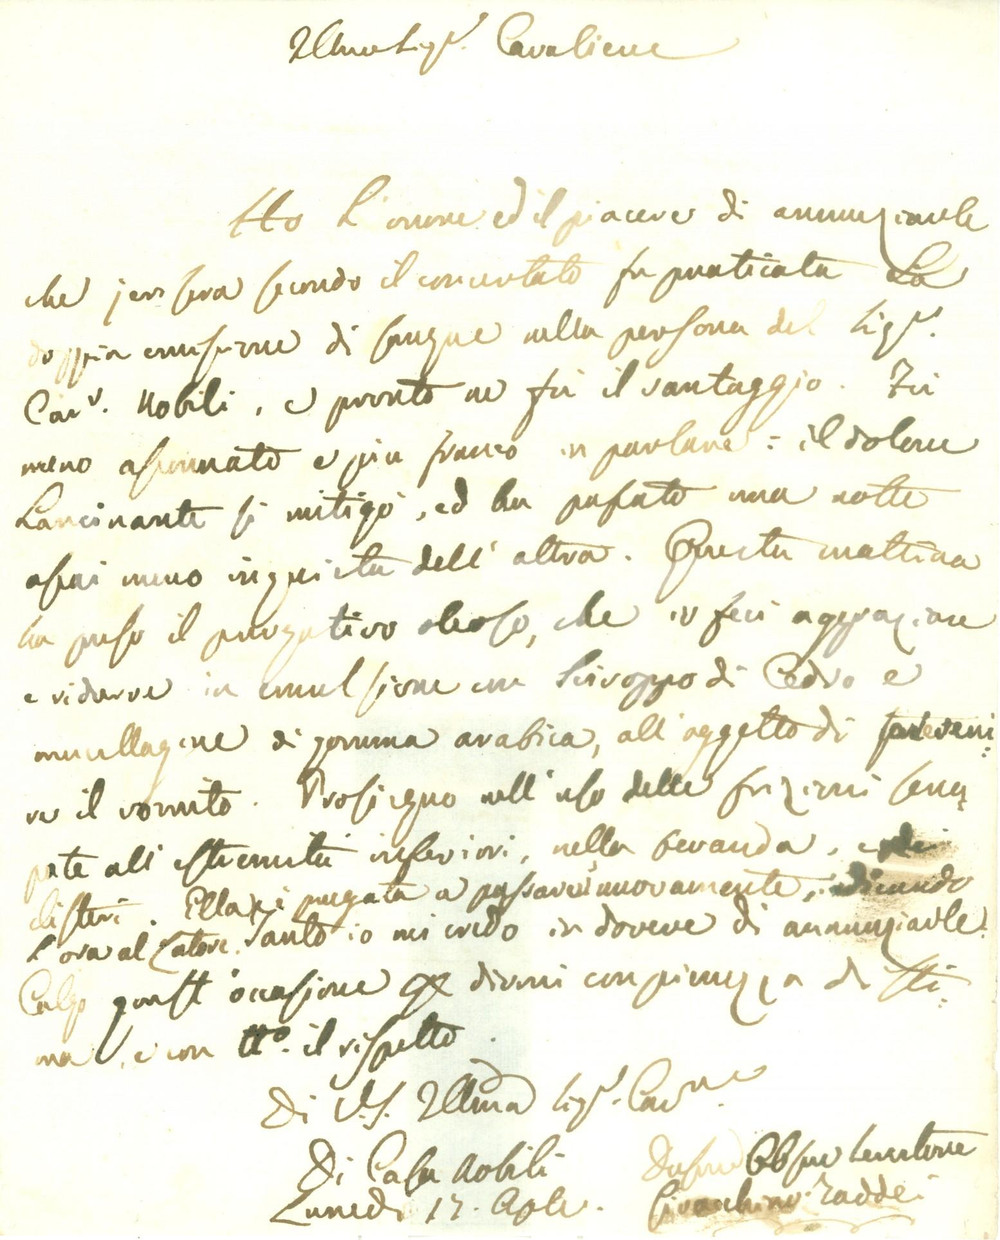 Illmo Sigr. Cavaliere
Ho l'onore ed il piacere di annunziarle
che jersera secondo il concertato fu praticata La
doppia emissione di sangue nella persona del Sigr.
Cavr. Nobili, e pronto ne fu il vantaggio. Fu
meno affannato e più franco in parlare: il dolore
Lancinante si mitigò, ed ha passato una notte
assai meno inquieta dell'altra. Questa mattina
ha preso il purgativo oleoso, che io feci aggraziare
e ridurre in emulsione con Sciroppo di Cedro e
mucillagine di gomma arabica, all'oggetto di preveni
re il vomito. Prosieguo nell'uso delle frizioni senap
pate all'estremità inferiori, nella bevanda, e di
clisteri. Ella è pregata a passare nuovamente, dicendo
l'ora al Latore. Tanto io mi credo in dovere di annunziarle.
Colgo quest'occasione di dirmi con pienezza di sti
ma, e con tto. il rispetto.
Di V.S. Illma Sigr. Cavre
Di Casa Nobili
Lunedi 17. Aple.
Obbmo Servitore
Giovacchino Taddei